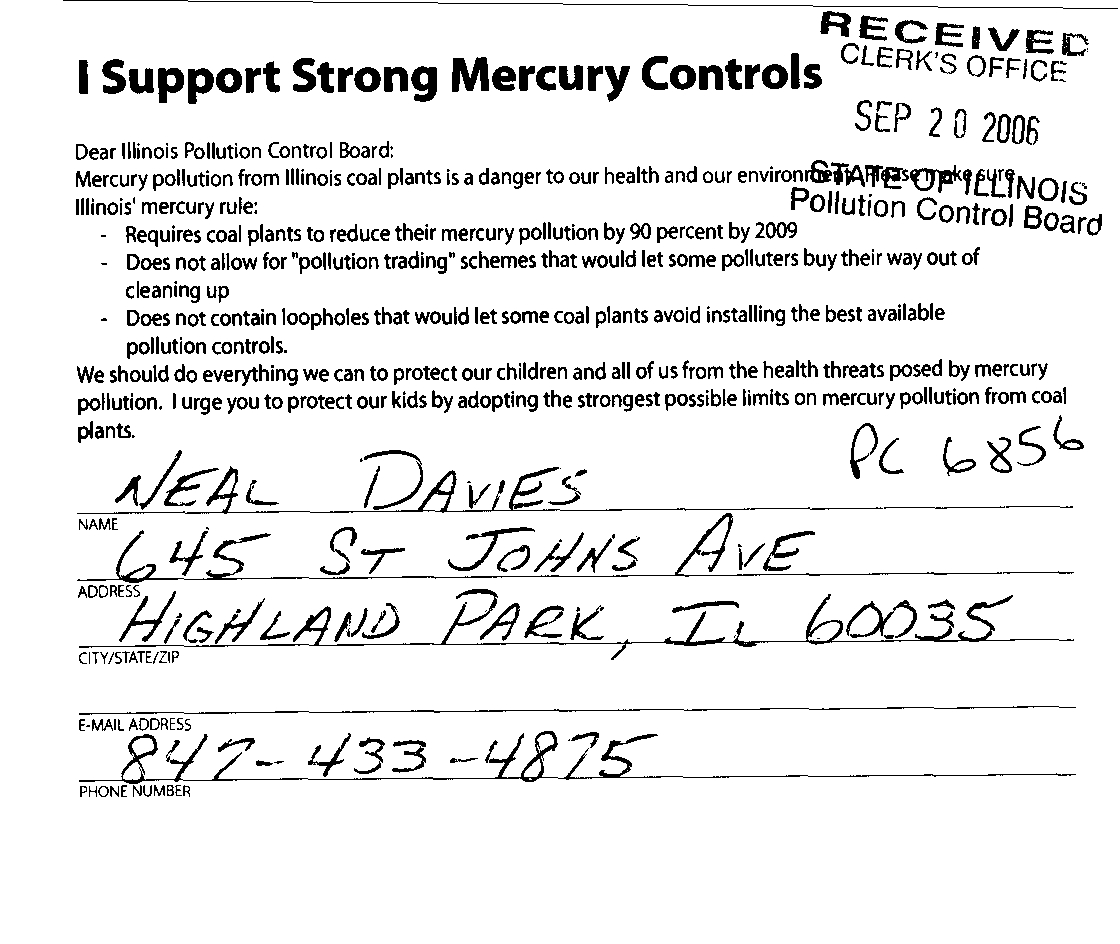 RECEIVED
CLERK'S OFFICE
I Support Strong Mercury Controls
SEP 20 2006
Dear Illinois Pollution Control Board:
Mercury pollution from Illinois coal plants is a danger to our health and our environment. Please make sure
STATE OF ILLINOIS
Illinois' mercury rule:
Pollution Control Board
- Requires coal plants to reduce their mercury pollution by 90 percent by 2009
- Does not allow for "pollution trading" schemes that would let some polluters buy their way out of
cleaning up
- Does not contain loopholes that would let some coal plants avoid installing the best available
pollution controls.
We should do everything we can to protect our children and all of us from the health threats posed by mercury
pollution. I urge you to protect our kids by adopting the strongest possible limits on mercury pollution from coal
plants.
PC 6856
NEAL DAVIES
NAME
645 ST JOHNS AVE
ADDRESS
HIGHLAND PARK, IL 60035
CITY/STATE/ZIP
E-MAIL ADDRESS
847-433-4875
PHONE NUMBER